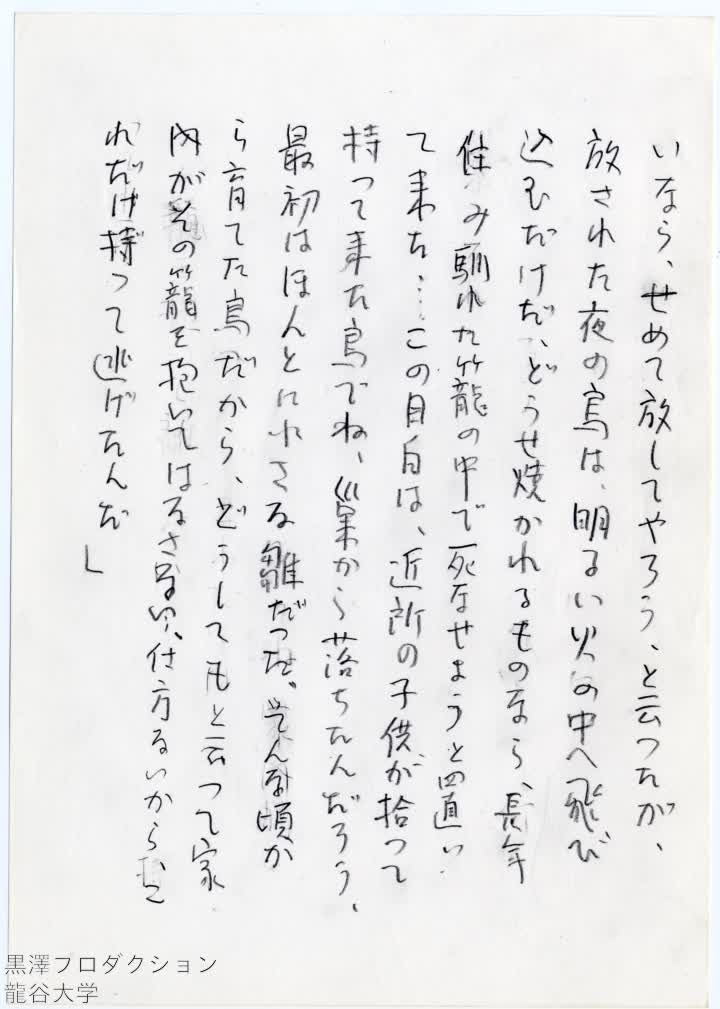 いなら、せめて放してやろう、と云つたが、
放された夜の鳥は、明るい火の中へ飛び
込むだけだ、どうせ焼かれるものなら、長年
住み馴れた籠の中で死なせようと
て来た…この目白は、近所の子供が拾って
持って来た鳥でね、巣から落ちたんだろう、
最初はほんとに小さな雛だつた。そんな頃か
ら育てた鳥だから、どうしてもと云つて家
内がその籠を抱いてはなさない、仕方ないから
れだけ持つて逃げたんだ」
黒澤プロダクション
龍谷大学